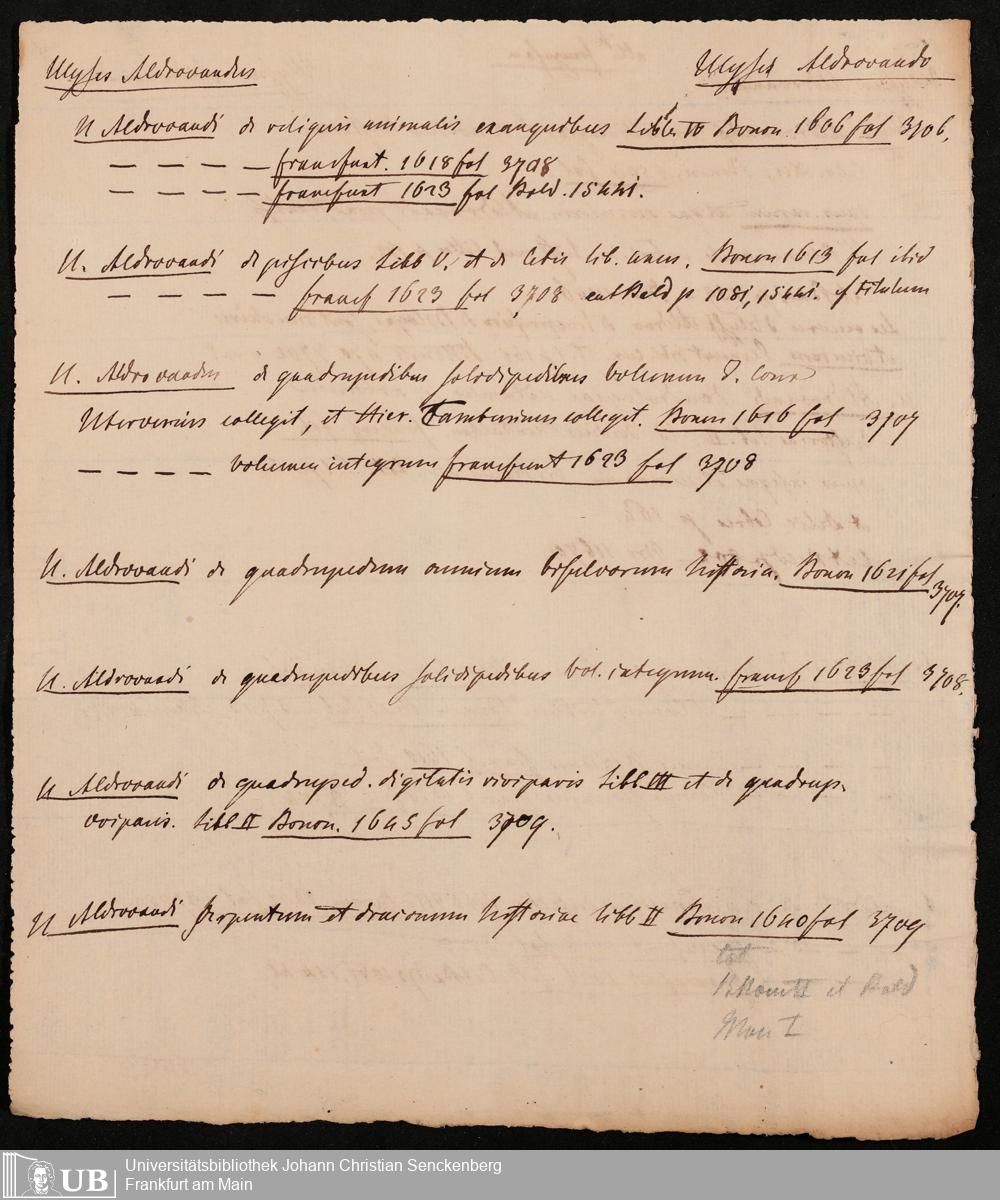 Ulysses Aldrovandus Ulysses Aldrovando
U Aldrovandi de reliquis animalis exanguibus Libb IV Bonon. 1606 fol 3706.
— — — — francfurt. 1618 fol 3708
— — — — francfurt 1623 fol Bald. 15
U. Aldrovandi de piscibus Libb V. et de Cetis lib. unus. Bonon 1613 fol ibid
— — — — francf 1623 fol 3708 Bald p 1081, cf titulum
U. Aldrovandus de quadrupedibus solidipedibus volumen J. Corn
Uterverius collegit, et Hier. Tamburinus collegit. Bonon 1616 fol 3707
— — — — volumen integrum francfurt 1623 fol 3708
U. Aldrovandi de quadrupedum omnium bisulcorum historia. Bonon 1621 fol 3707.
U. Aldrovandi de quadrupedibus solidipedibus vol. integrum. francf 1623 fol 3708.
U Aldrovandi de quadruped. digitatis viviparis Libb III et de quadrup.
oviparis. Libb II Bonon. 1645 fol 3709.
U Aldrovandi Serpentum et draconum historiae libb II Bonon 1640 fol 3709
et Bald
I
UB Universitätsbibliothek Johann Christian Senckenberg
Frankfurt am Main